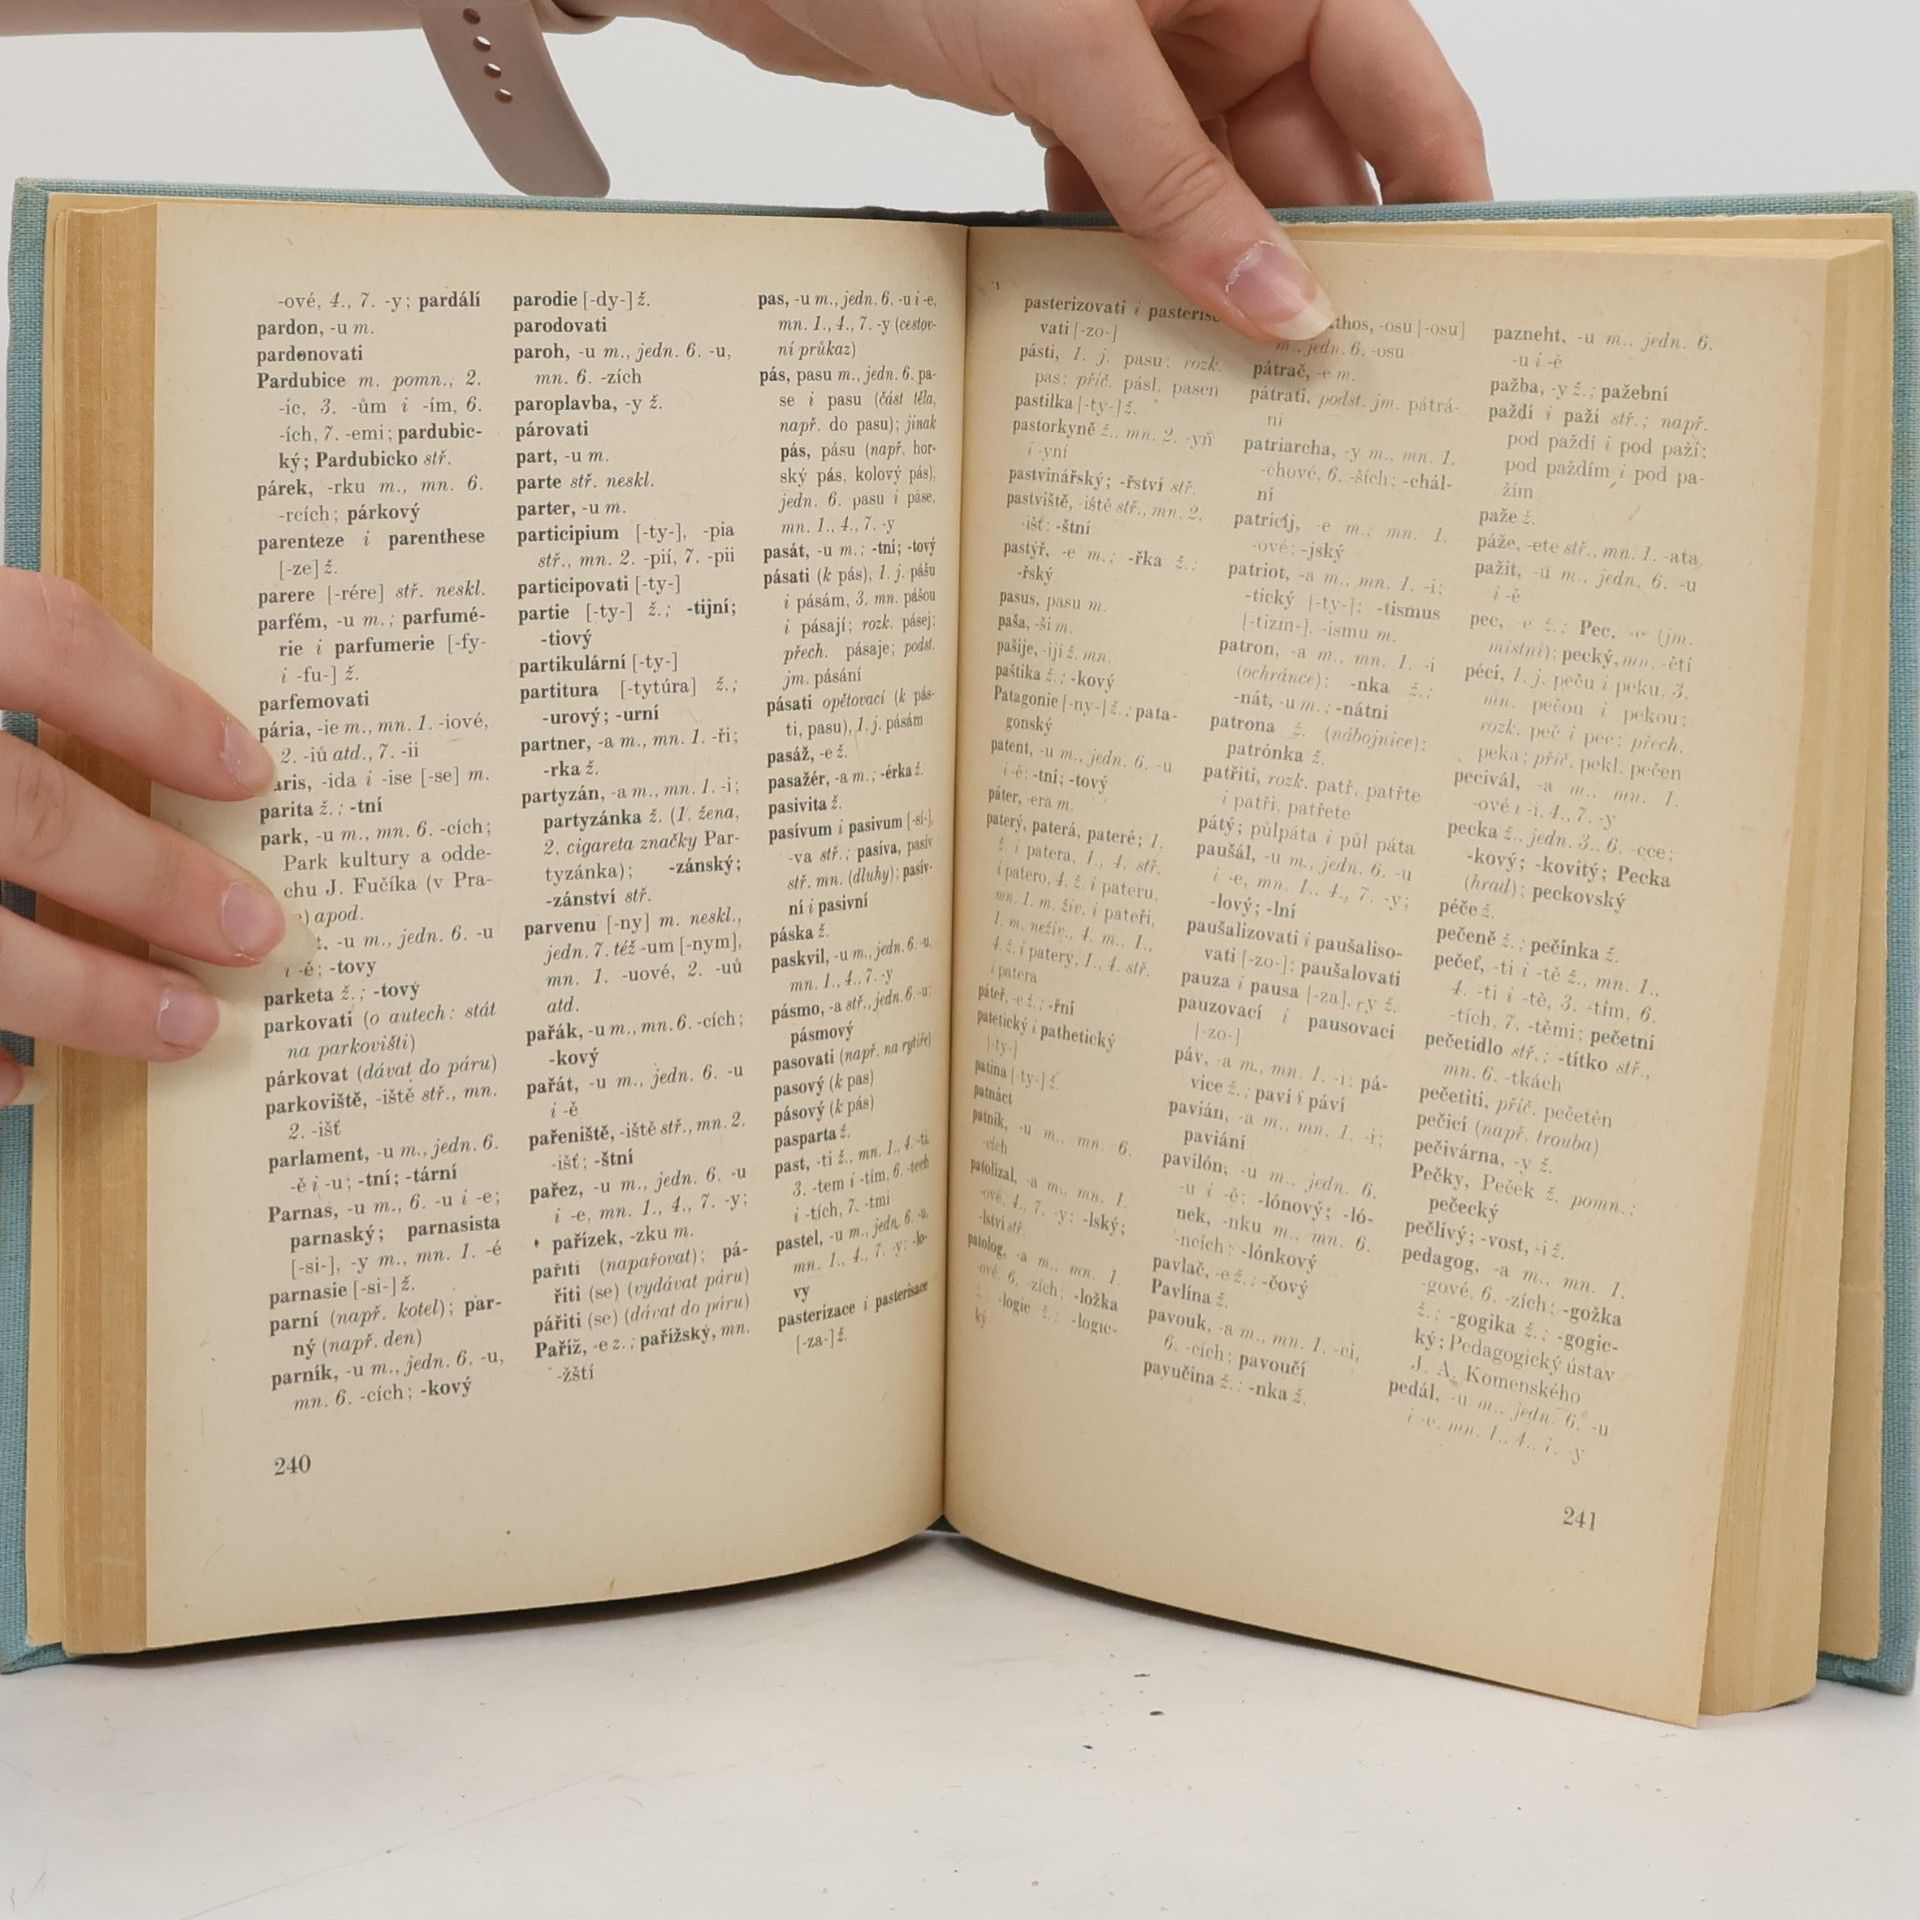 -ové, 4., 7. -y; pardálí
pardon, -u m.
pardonovati
Pardubice m. pomn., 2.
-ic, 3. -ům i -ím, 6.
-ích, 7. -emi; pardubic-
ký; Pardubicko stř.
párek, -rku m., mn. 6.
-rcích; párkový
parenteze i parenthese
[-ze] ž.
parere [-rére] stř. neskl.
parfém, -u m.; parfumé-
rie i parfumerie [-fy-
i -fu-] ž.
parfemovati
pária, -ie m., mn. 1. -iové,
2. -iů atd., 7. -ii
aris, -ida i -ise [-se] m.
parita ž.; -tní
park, -u m., mn. 6. -cích;
Park kultury a odde-
chu J. Fučíka (v Pra-
) apod.
t, -u m., jedn. 6. -u
i -ě; -tový
parketa ž.; -tový
parkovati (o autech: stát
na parkovišti)
párkovat (dávat do páru)
parkoviště, -iště stř., mn.
2. -išť
parlament, -u m., jedn. 6.
-ě i -u; -tní; -tární
Parnas, -u m., 6. -u i -e;
parnaský; parnasista
[-si-], -y m., mn. 1. -é
parnasie [-si-] ž.
parní (např. kotel); par-
ný (např. den)
parník, -u m., jedn. 6. -u,
mn. 6. -cích; -kový
parodie [-dy-] ž.
parodovati
paroh, -u m., jedn. 6. -u,
mn. 6. -zích
paroplavba, -y ž.
párovati
part, -u m.
parte stř. neskl.
parter, -u m.
participium [-ty-], -pia
stř., mn. 2. -pií, 7. -pii
participovati [-ty-]
partie [-ty-] ž.; -tijní;
-tiový
partikulární [-ty-]
partitura [-tytúra] ž.;
-urový; -urní
partner, -a m., mn. 1. -ři;
-rka ž.
partyzán, -a m., mn. 1. -i;
partyzánka ž. (1. žena,
2. cigareta značky Par-
tyzánka); -zánský;
-zánství stř.
parvenu [-ny] m. neskl.,
jedn. 7. též -um [-nym],
mn. 1. -uové, 2. -uů
atd.
pařák, -u m., mn. 6. -cích;
-kový
pařát, -u m., jedn. 6. -u
i -ě
pařeniště, -iště stř., mn. 2.
-išť; -štní
pařez, -u m., jedn. 6. -u
i -e, mn. 1., 4., 7. -y;
pařízek, -zku m.
pařiti (napařovat); pá-
řiti (se) (vydávat páru)
pářiti (se) (dávat do páru)
Paříž, -e ž.; pařížský, mn.
-žští
pas, -u m., jedn. 6. -u i -e,
mn. 1., 4., 7. -y (cestov-
ní průkaz)
pás, pasu m., jedn. 6. pa-
se i pasu (část těla,
např. do pasu); jinak
pás, pásu (např. hor-
ský pás, kolový pás),
jedn. 6. pasu i páse,
mn. 1., 4., 7. -y
pasát, -u m.; -tní; -tový
pásati (k pás), 1. j. pášu
i pásám, 3. mn. pášou
i pásají; rozk. pásej;
přech. pásaje; podst.
jm. pásání
pásati opětovací (k pás-
ti, pasu), 1. j. pásám
pasáž, -e ž.
pasažér, -a m.; -érka ž.
pasivita ž.
pasívum i pasivum [-sí-],
-va stř.; pasíva, pasív
stř. mn. (dluhy); pasív-
ní i pasivní
páska ž.
paskvil, -u m., jedn. 6. -u,
mn. 1., 4., 7. -y
pásmo, -a stř., jedn. 6. -u;
pásmový
pasovati (např. na rytíře)
pasový (k pas)
pásový (k pás)
pasparta ž.
past, -ti ž., mn. 1., 4. -ti,
3. -tem i -tím, 6. -tech
i -tích, 7. -tmi
pastel, -u m., jedn. 6. -u,
mn. 1., 4., 7. -y; -lo-
vý
pasterizace i pasterisace
[-za-] ž.
240
pasterizovati i pasteriso-
vati [-zo-]
pásti, 1. j. pasu; rozk.
pas; příč. pásl, pasen
pastilka [-ty-] ž.
pastorkyně ž., mn. 2. -yň
i -yní
pastvinářský; -řství stř.
pastviště, -iště stř., mn. 2.
-išť; -štní
pastýř, -e m.; -řka ž.;
-řský
pasus, pasu m.
paša, -ši m.
pašije, -ijí ž. mn.
paštika ž.; -kový
Patagonie [-ny-] ž.; pata-
gonský
patent, -u m., jedn. 6. -u
i -ě; -tní; -tový
páter, -era m.
paterý, paterá, pateré; 1.
ž. i patera, 1., 4. stř.
i patero, 4. ž. i pateru,
mn. 1. m. živ. i pateři,
1. m. neživ., 4. m., 1.,
4. ž. i patery, 1., 4. stř.
i patera
páteř, -e ž.; -řní
patetický i pathetický
[-ty-]
patina [-ty-] ž.
patnáct
patník, -u m., mn. 6.
-cích
patolízal, -a m., mn. 1.
-ové, 4., 7. -y; -lský;
-lství stř.
patolog, -a m., mn. 1.
-ové, 6. -zích; -ložka
ž.; -logie ž.; -logic-
ký
thos, -osu [-osu]
m., jedn. 6. -osu
pátrač, -e m.
pátrati, podst. jm. pátrá-
ní
patriarcha, -y m., mn. 1.
-chové, 6. -ších; -chál-
ní
patricij, -e m., mn. 1.
-ové; -jský
patriot, -a m., mn. 1. -i;
-tický [-ty-]; -tismus
[-tizm-], -ismu m.
patron, -a m., mn. 1. -i
(ochránce); -nka ž.;
-nát, -u m.; -nátní
patrona ž. (nábojnice);
patrónka ž.
patřiti, rozk. patř, patřte
i patři, patřete
pátý; půlpáta i půl páta
paušál, -u m., jedn. 6. -u
i -e, mn. 1., 4., 7. -y;
-lový; -lní
paušalizovati i paušaliso-
vati [-zo-]; paušalovati
pauza i pausa [-za], -y ž.
pauzovací i pausovací
[-zo-]
páv, -a m., mn. 1. -i; pá-
vice ž.; paví i páví
pavián, -a m., mn. 1. -i;
paviání
pavilón, -u m., jedn. 6.
-u i -ě; -lónový; -ló-
nek, -nku m., mn. 6.
-ncích; -lónkový
pavlač, -e ž.; -čový
Pavlína ž.
pavouk, -a m., mn. 1. -ci,
6. -cích; pavoučí
pavučina ž.; -nka ž.
pazneht, -u m., jedn. 6.
-u i -ě
pažba, -y ž.; pažební
paždí i paží stř.; např.
pod paždí i pod paží;
pod paždím i pod pa-
žím
paže ž.
páže, -ete stř., mn. 1. -ata
pažit, -u m., jedn. 6. -u
i -ě
pec, -e ž.; Pec, -e (jm.
místní); pecký, mn. -ětí
péci, 1. j. peču i peku, 3.
mn. pečou i pekou;
rozk. peč i pec; přech.
peka; příč. pekl, pečen
pecivál, -a m., mn. 1.
-ové i -i, 4., 7. -y
pecka ž., jedn. 3., 6. -cce;
-kový; -kovitý; Pecka
(hrad); peckovský
péče ž.
pečeně ž.; pečínka ž.
pečeť, -ti i -tě ž., mn. 1.,
4. -ti i -tě, 3. -tím, 6.
-tích, 7. -těmi; pečetní
pečetidlo stř.; -títko stř.,
mn. 6. -tkách
pečetiti, příč. pečetěn
pečicí (např. trouba)
pečivárna, -y ž.
Pečky, Peček ž. pomn.;
pečecký
pečlivý; -vost, -i ž.
pedagog, -a m., mn. 1.
-gové, 6. -zích; -gožka
ž.; -gogika ž.; -gogic-
ký; Pedagogický ústav
J. A. Komenského
pedál, -u m., jedn. 6. -u
i -e, mn. 1., 4., 7. -y
241